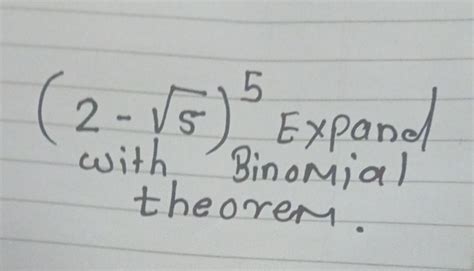 (2 - √5)^5 Expand
with Binomial
theorem.